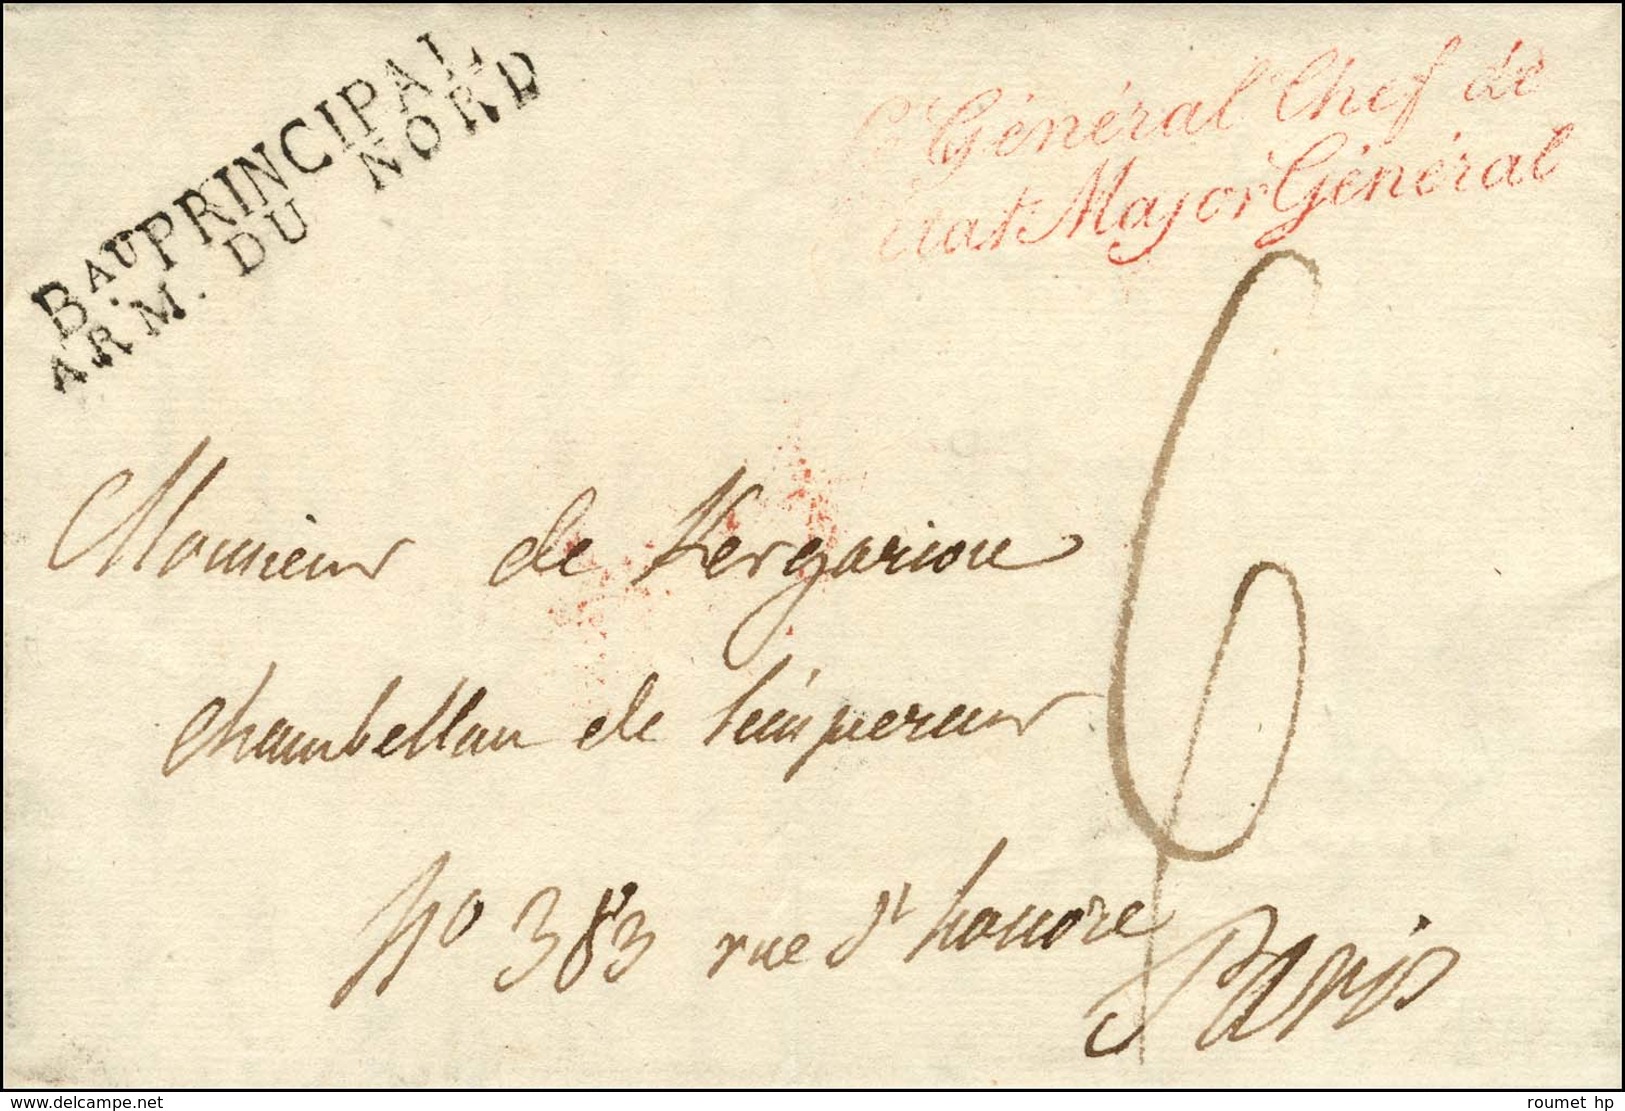 BAU PRINCIPAL
ARM. DU NORD
Général Chef de
Etat Major Général
6
Monsieur de Kergariou
chambellan de l'empereur
No 383 rue st honore
Paris
www.delcampe.net
roumet hp